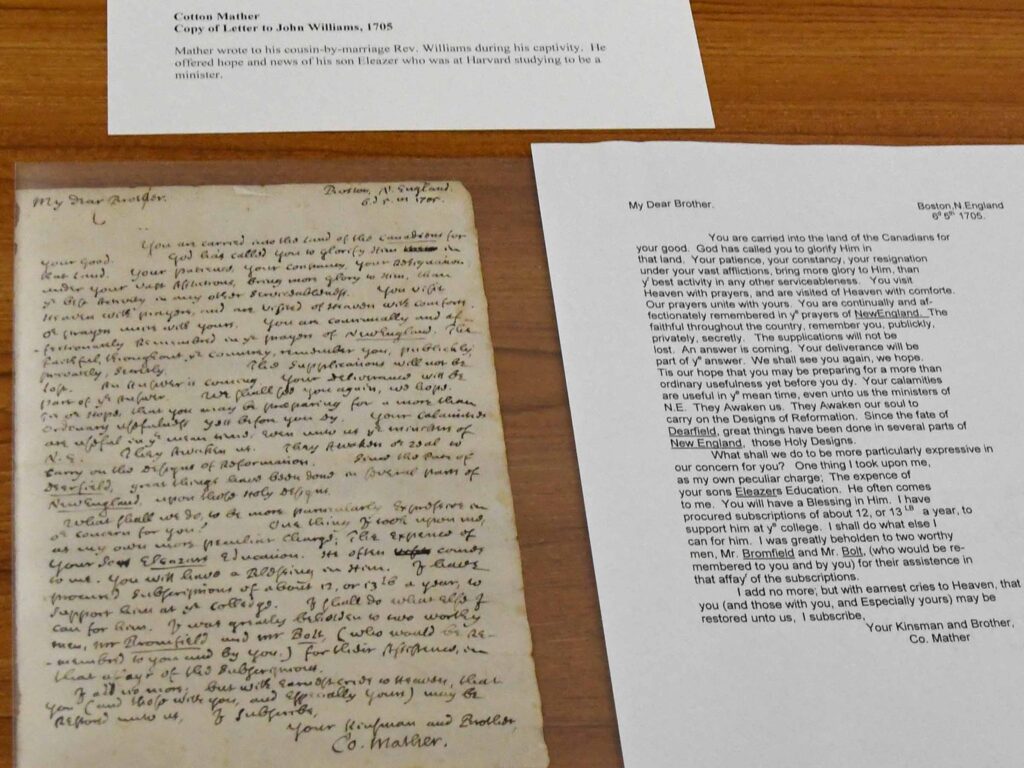 Cotton Mather
Copy of Letter to John Williams, 1705
Mather wrote to his cousin-by-marriage Rev. Williams during his captivity. He
offered hope and news of his son Eleazer who was at Harvard studying to be a
minister.
My Dear Brother.
Boston, N. England.
6d 5m 1705.
You are carried into the Land of the Canadiens for
your good. God has called you to glorify Him in
that Land. Your patience, your Constancy, your Resignation
under your vast Afflictions, bring more glory to Him, than
ye best Activity in any other Serviceableness. You visit
Heaven with prayers, and are visited of Heaven with comforts.
Or prayers unite with yours. You are continually and af-
-fectionately Remembred in ye prayers of NewEngland. The
faithful, throughout ye Countrey, remember you, publickly,
privately, Secretly. The Supplications will not be
lost. An Answer is coming. Your deliverance will be
part of ye Answer. We shall see you again, we hope.
Tis or Hope, that you may be preparing for a more than
Ordinary usefulness yett before you dy. Your Calamities
are useful in ye mean time, even unto us ye ministers of
N. E. They Awaken us. They Awaken or zeal to
carry on the Designs of Reformation. Since the Fate of
Deerfield, great things have been done in several parts of
NewEngland, upon those Holy Designs.
What shall we do, to be more particularly Expressive in
or concern for you? One thing I took upon me,
as my own more peculiar Charge; The Expence of
your Son Eleazers Education. He often comes
to me. You will have a Blessing in Him. I have
procured Subscriptions of about 12, or 13 lb a year, to
Support him at ye Colledge. I shall do what else I
can for him. I was greatly beholden to two worthy
men, mr Bromfield and mr Bolt, (who would be Re-
-membred to you and by you.) for their Assistence, in
that affayr of the Subscriptions.
I add no more; but with Earnest cries to Heaven, that
you (and those with you, and Especially yours) may be
Restored unto us, I Subscribe,
Your Kinsman and Brother,
Co. Mather.
My Dear Brother.
Boston,N.England
6º 5th 1705.
You are carried into the land of the Canadians for
your good. God has called you to glorify Him in
that land. Your patience, your constancy, your resignation
under your vast afflictions, bring more glory to Him, than
y' best activity in any other serviceableness. You visit
Heaven with prayers, and are visited of Heaven with comforte.
Our prayers unite with yours. You are continually and af-
fectionately remembered in ye prayers of NewEngland. The
faithful throughout the country, remember you, publicly,
privately, secretly. The supplications will not be
lost. An answer is coming. Your deliverance will be
part of ye answer. We shall see you again, we hope.
Tis our hope that you may be preparing for a more than
ordinary usefulness yet before you dy. Your calamities
are useful in ye mean time, even unto us the ministers of
N.E. They Awaken us. They Awaken our soul to
carry on the Designs of Reformation. Since the fate of
Dearfield, great things have been done in several parts of
New England, those Holy Designs.
What shall we do to be more particularly expressive in
our concern for you? One thing I took upon me,
as my own peculiar charge; The expence of
your sons Eleazers Education. He often comes
to me. You will have a Blessing in Him. I have
procured subscriptions of about 12, or 13 LB a year, to
support him at ye college. I shall do what else I
can for him. I was greatly beholden to two worthy
men, Mr. Bromfield and Mr. Bolt, (who would be re-
membered to you and by you) for their assistance in
that affay' of the subscriptions.
I add no more, but with earnest cries to Heaven, that
you (and those with you, and Especially yours) may be
restored unto us, I subscribe,
Your Kinsman and Brother,
Co. Mather